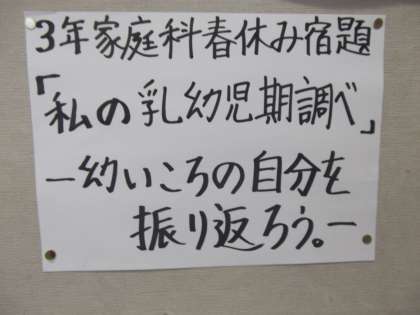 3年家庭科春休み宿題
「私の乳幼児期調べ」
―幼いころの自分を
振り返ろう。―